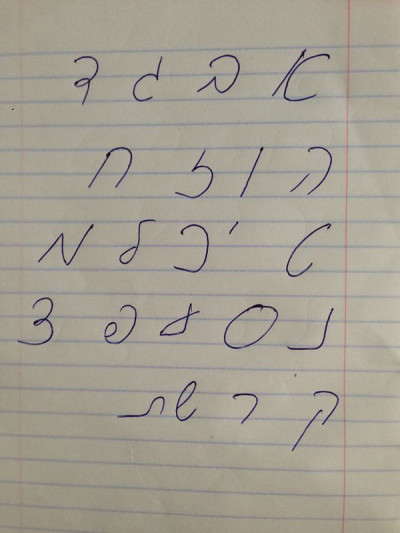 א ב ג ד
ה ו ז ח
ט י כ ל מ
נ ס ע פ צ
ק ר ש ת